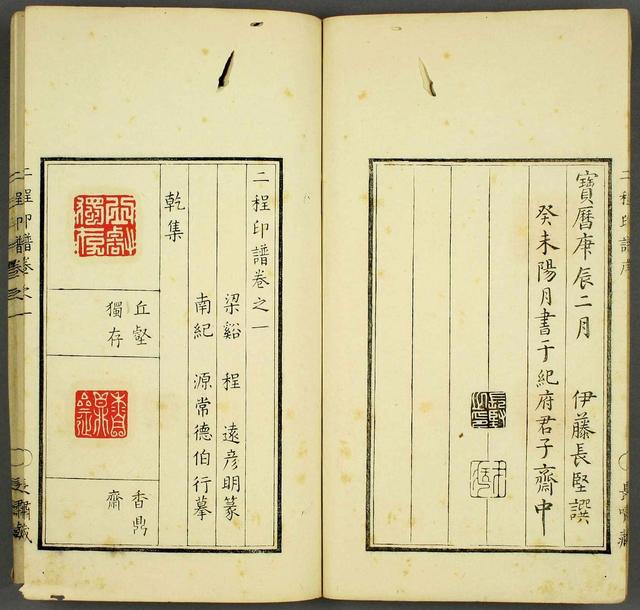 寶曆庚辰二月 伊藤長堅譔
癸未陽月書于紀府君子齋中
二程印譜卷之一
梁谿 程 遠彥明篆
南紀 源常德伯行摹
乾集
丘壑
獨存
香鼎
齋
二程印譜卷之一